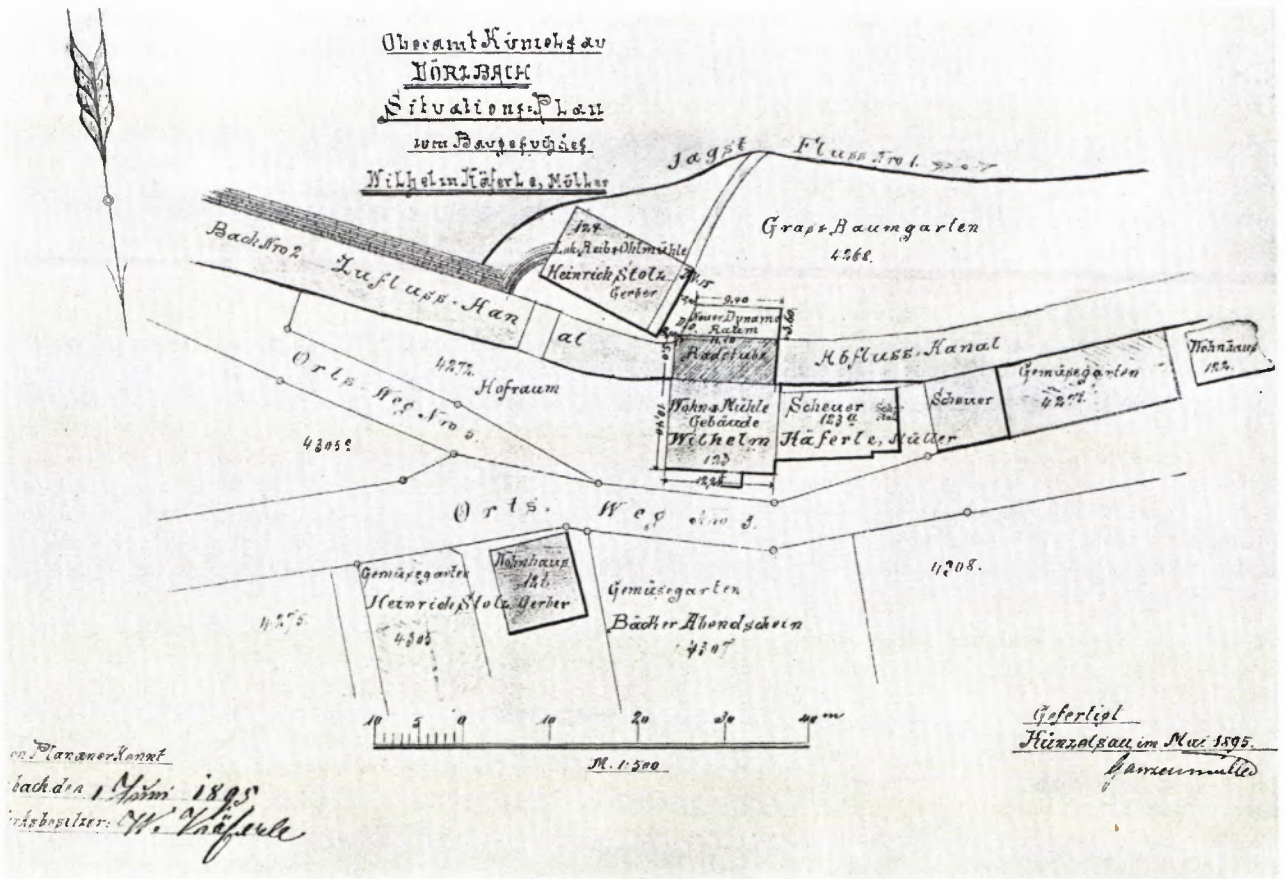 Oberamt Künzelsau
DÖRZBACH
Situations=Plan
zum Baugesuch des
Wilhelm Käferle, Müller
Jagst Fluss Nro 1.
Bach Nro 2
Zufluss-Kanal
124
Loh, Reib & Öhlmühle
Heinrich Stolz
Gerber
Grass & Baumgarten
4268.
9,40
Neuer Dynamo
Raum
3,60
Radstube
Abfluss-Kanal
4272
Hofraum
Orts-Weg Nro 5.
4305
Wohn & Mühle
Gebäude
Wilhelm
123
Scheuer
123a
Käferle, Müller
Scheuer
Gemüsegarten
4271
Wohnhaus
122.
Orts. Weg Nro 3.
Gemüsegarten
Heinrich Stolz, Gerber
4305
Wohnhaus
126
Gemüsegarten
Bäcker Abendschein
4307
4308.
4275.
10 5 0 10 20 30 40 m
M. 1:500
Gefertigt
Künzelsau im Mai 1895.
Ganzenmüller
en Plan anerkennt
bach den 1 Juni 1895
rksbesitzer: W. Käferle